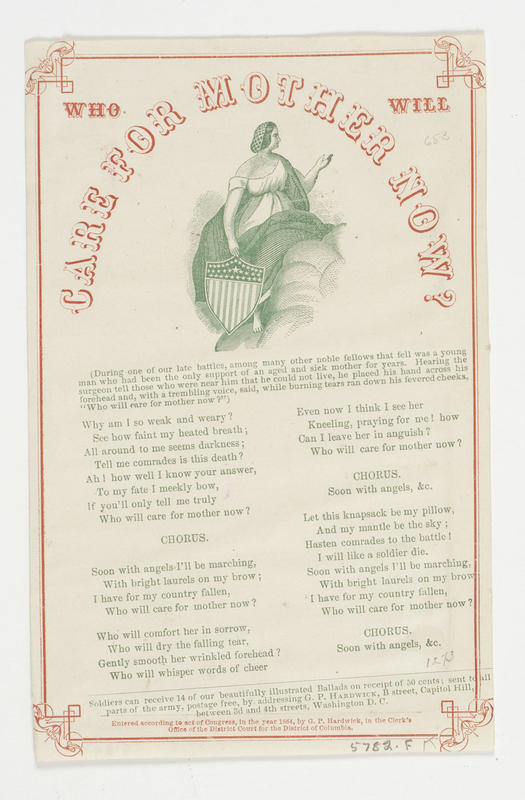 WHO WILL
CARE FOR MOTHER NOW?
653
(During one of our late battles, among many other noble fellows that fell was a young
man who had been the only support of an aged and sick mother for years. Hearing the
surgeon tell those who were near him that he could not live, he placed his hand across his
forehead and, with a trembling voice, said, while burning tears ran down his fevered cheeks,
"Who will care for mother now?")
Why am I so weak and weary?
See how faint my heated breath;
All around to me seems darkness;
Tell me comrades is this death?
Ah! how well I know your answer,
To my fate I meekly bow,
If you'll only tell me truly
Who will care for mother now?
CHORUS.
Soon with angels I'll be marching,
With bright laurels on my brow;
I have for my country fallen,
Who will care for mother now?
Who will comfort her in sorrow,
Who will dry the falling tear,
Gently smooth her wrinkled forehead?
Who will whisper words of cheer
Even now I think I see her
Kneeling, praying for me! how
Can I leave her in anguish?
Who will care for mother now?
CHORUS.
Soon with angels, &c.
Let this knapsack be my pillow,
And my mantle be the sky;
Hasten comrades to the battle!
I will like a soldier die.
Soon with angels I'll be marching,
With bright laurels on my brow
I have for my country fallen,
Who will care for mother now?
CHORUS.
Soon with angels, &c.
Soldiers can receive 14 of our beautifully illustrated Ballads on receipt of 50 cents; sent to all
parts of the army, postage free, by addressing G. P. HARDWICK, B street, Capitol Hill,
between 3d and 4th streets, Washington D. C.
Entered according to act of Congress, in the year 1864, by G. P. Hardwick, in the Clerk's
Office of the District Court for the District of Columbia.
5782.F